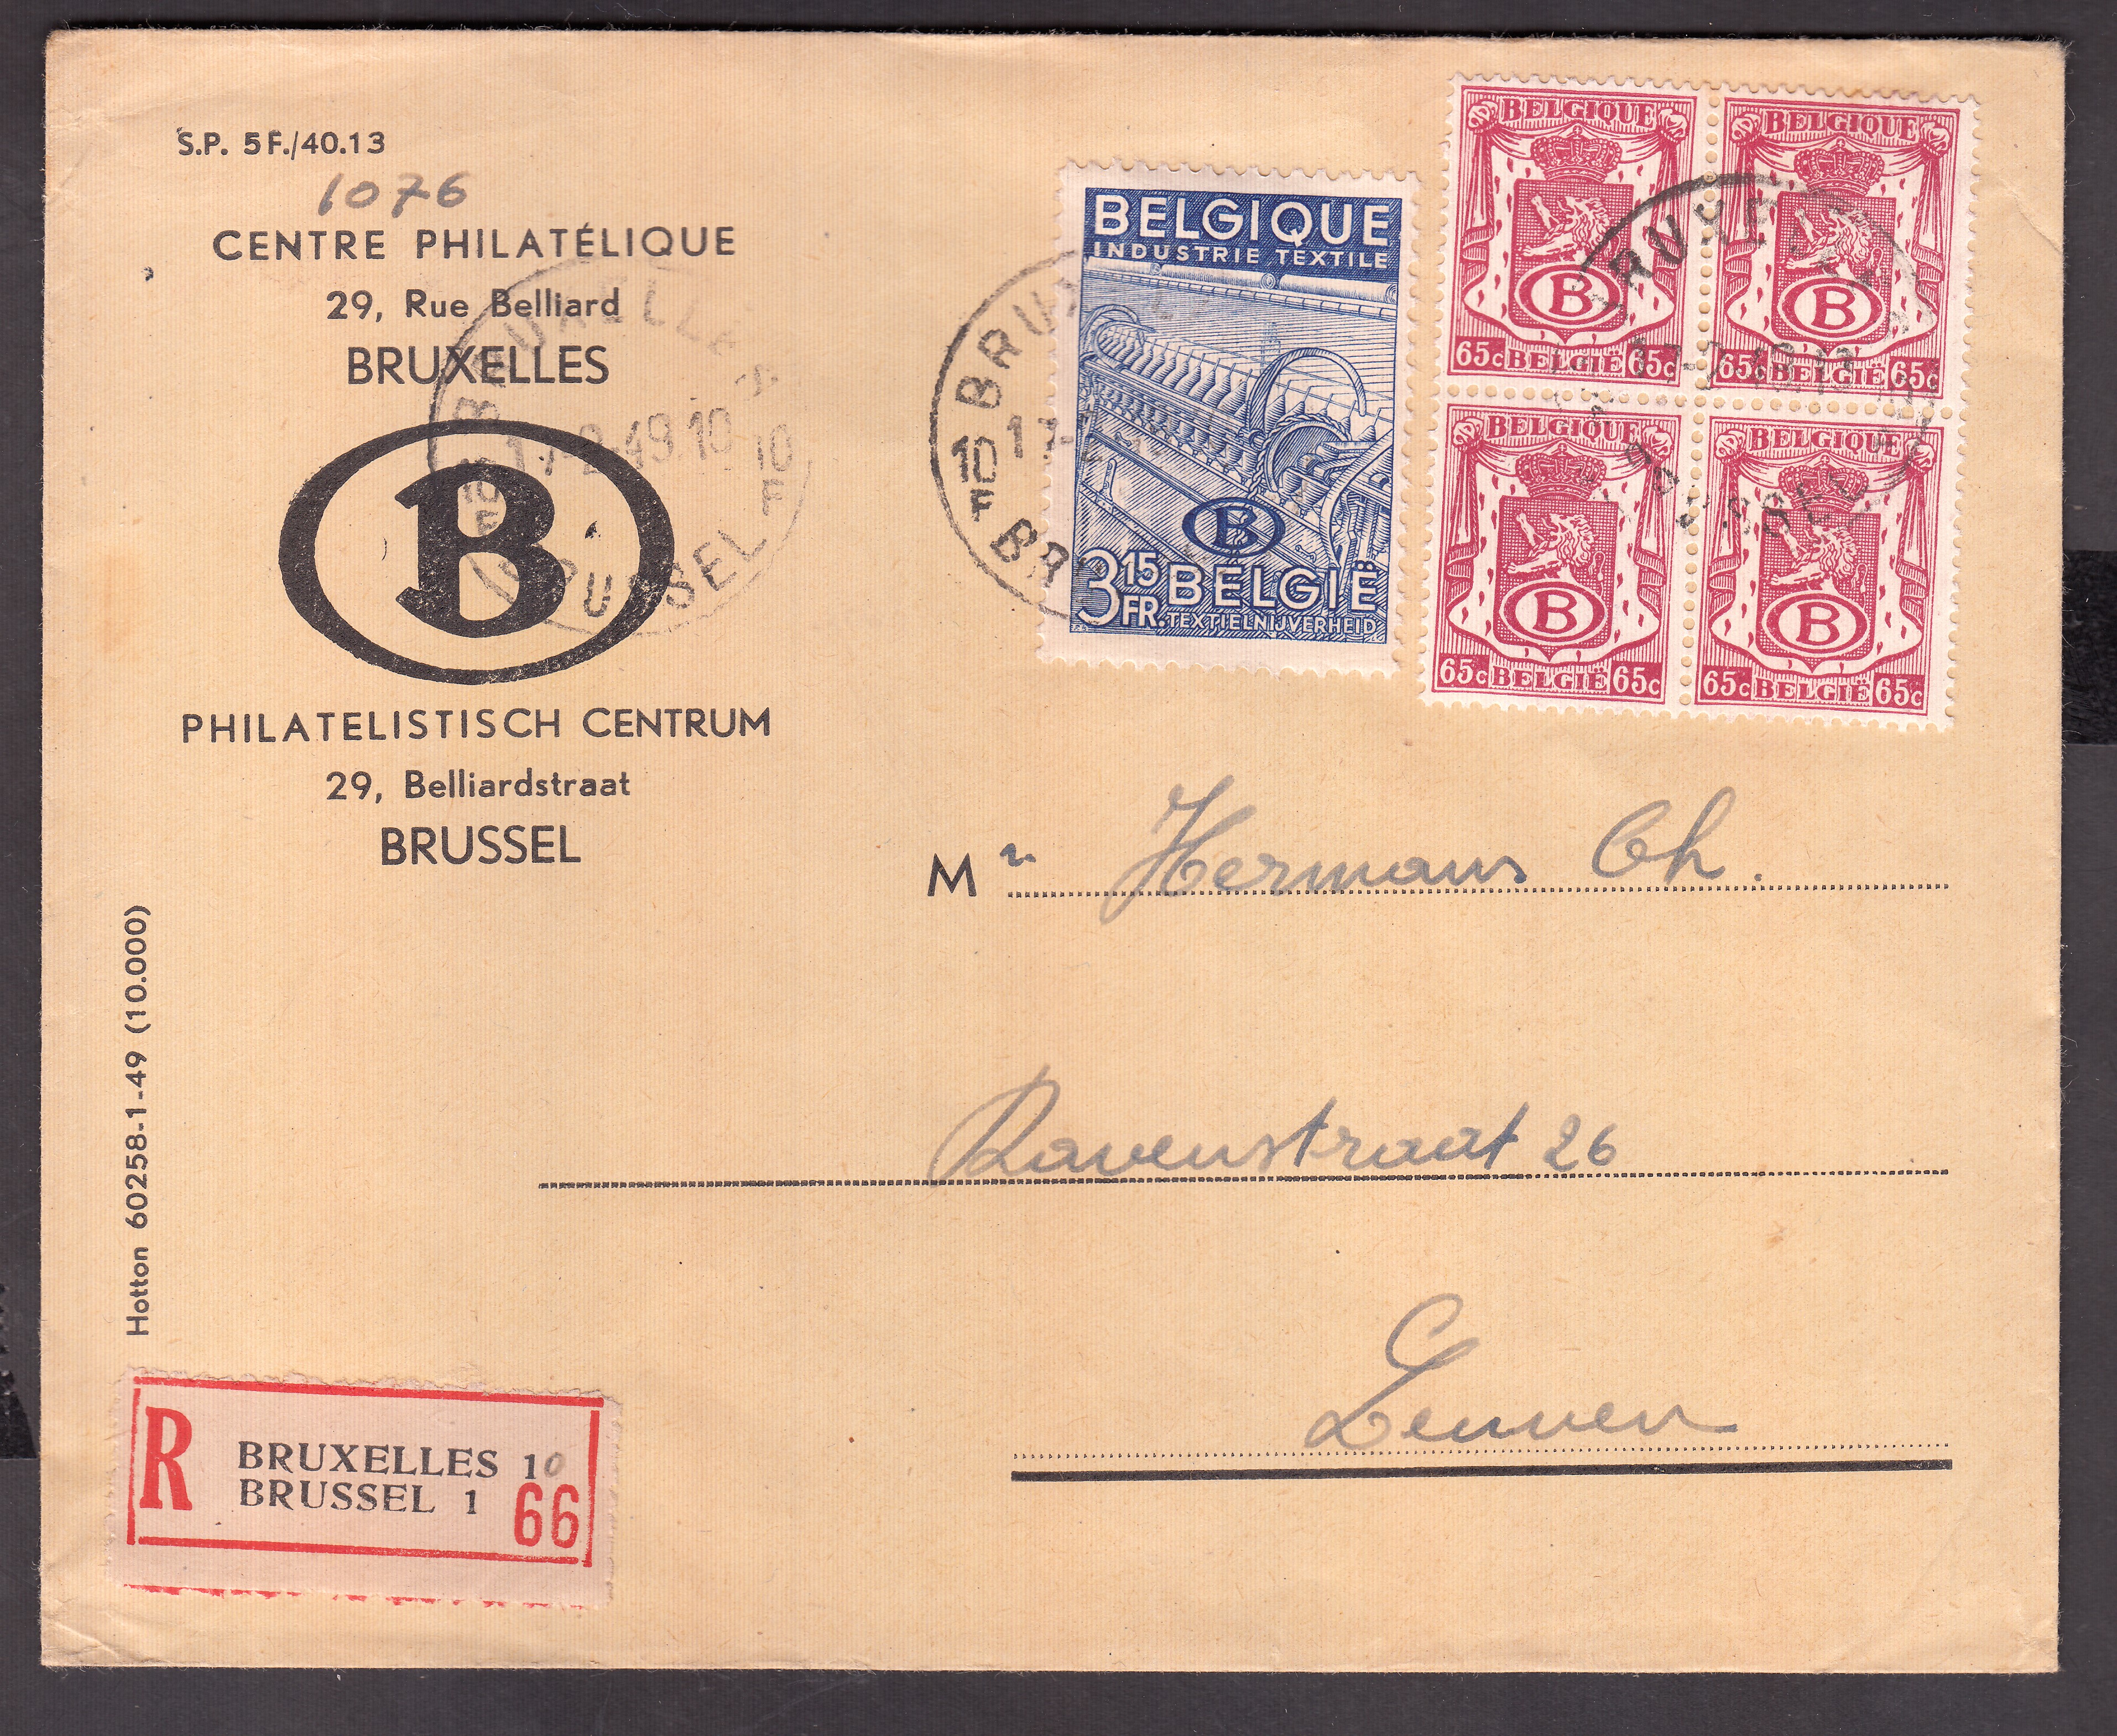 S.P. 5 F./40.13
1076
CENTRE PHILATÉLIQUE
29, Rue Belliard
BRUXELLES
B
PHILATELISTISCH CENTRUM
29, Belliardstraat
BRUSSEL
BRUXELLES
10
F
17-2-49.10
10
F
BRUSSEL
BELGIQUE
INDUSTRIE TEXTILE
B
3 15 FR. BELGIË
TEXTIELNIJVERHEID
10
F
BELGIQUE
B
65c BELGIË 65c
BELGIQUE
B
65c BELGIË 65c
BELGIQUE
B
65c BELGIË 65c
BELGIQUE
B
65c BELGIË 65c
BRUXELLES
BRUSSEL
Mr Hermans Ch.
Ravenstraat 26
Leuven
Hotton 60258-1-49 (10.000)
R
BRUXELLES 10
BRUSSEL 1
66